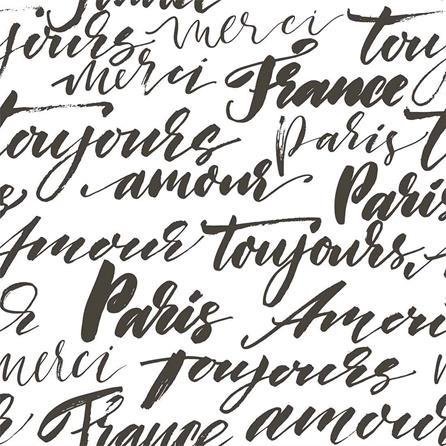 France
jours merci touj
merci France
toujours Paris
amour Paris
Amour toujours,
Paris Amour
merci Toujours
France amour